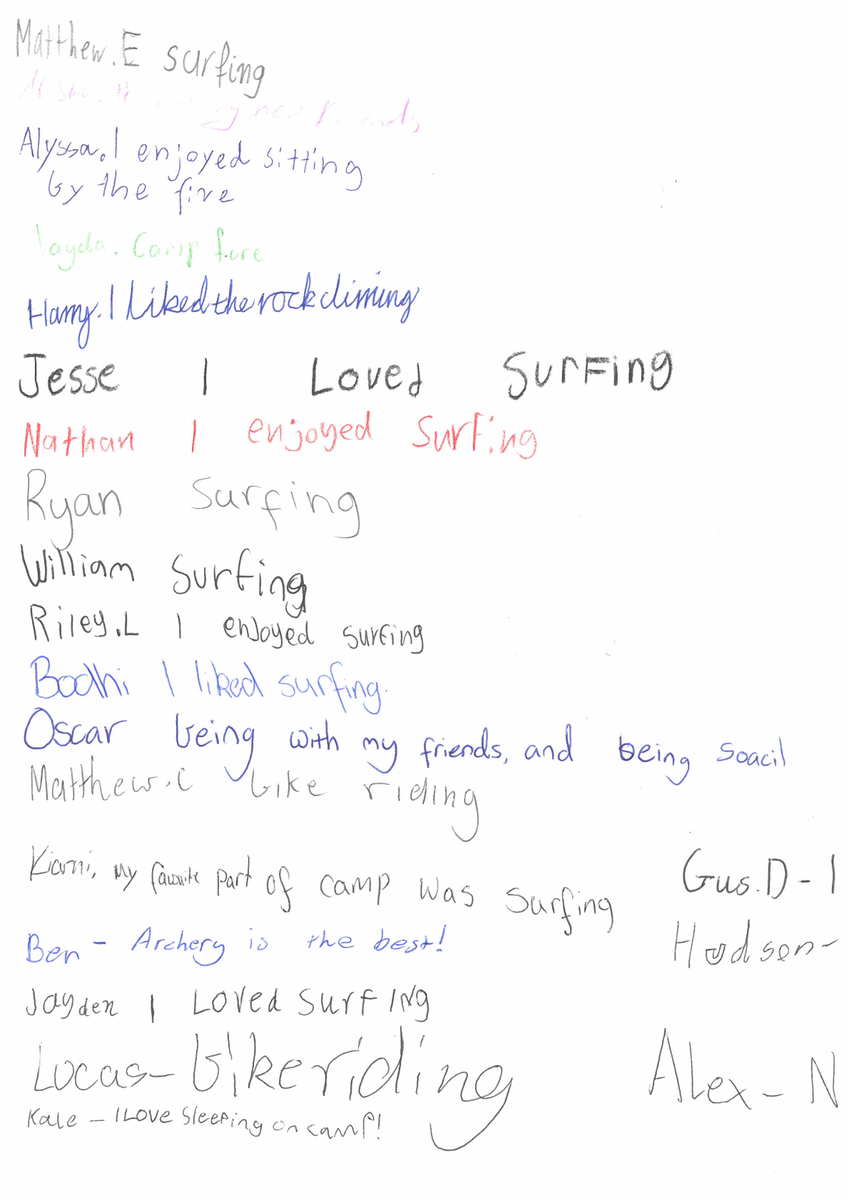 Matthew.E surfing
new
Alyssa. I enjoyed sitting
by the fire
Camp fire
Harry. I Liked the rock climing
Jesse I Loved Surfing
Nathan I enjoyed Surfing
Ryan Surfing
William Surfing
Riley.L I enjoyed surfing
Bodhi I liked surfing.
Oscar being with my friends, and being soacil
Matthew.C bike riding
Kiarni, My favourite part of camp was surfing
Gus.D - I
Ben - Archery is the best!
Hudson-
Jayden I Loved surfing
Lucas - bikeriding
Alex - N
Kale - I Love sleeping on camp!